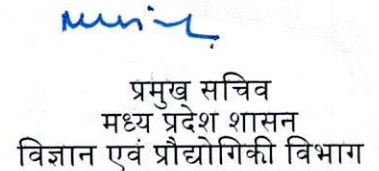 प्रमुख सचिव
मध्य प्रदेश शासन
विज्ञान एवं प्रौद्योगिकी विभाग